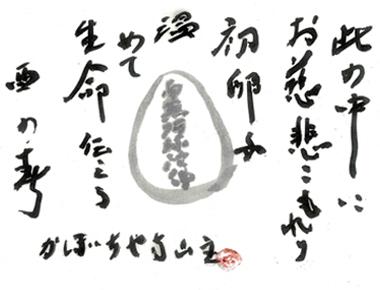 此の中に
お慈悲こもれり
初卵
温
めて
南無阿弥陀仏
生命伝う
酉の春
かぼちゃ寺山主